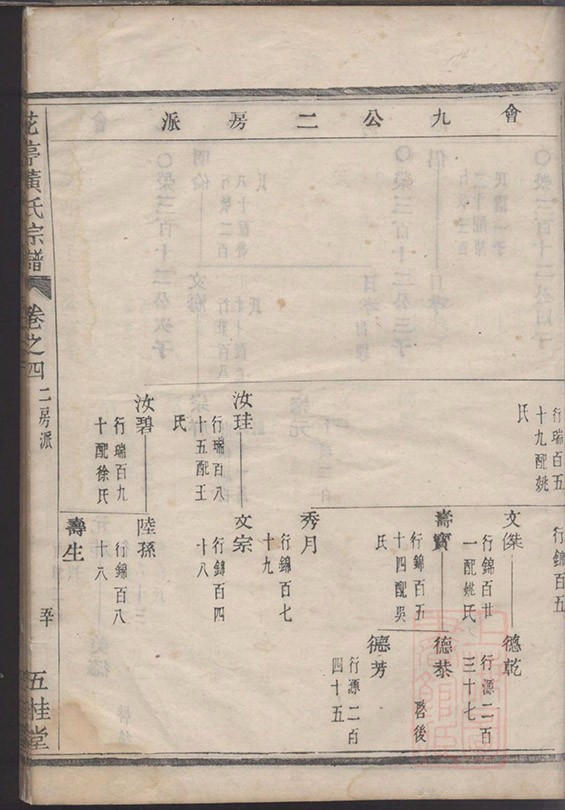 會九公二房派
行瑞百五
十九配姚
氏
行錦百五
文傑
行錦百廿
一配姚氏
德乾
行源二百
三十七
壽寶
行錦百五
十四配吳
氏
德恭
啓後
德芳
行源二百
四十五
秀月
行錦百七
十九
汝珪
行瑞百八
十五配王
氏
文宗
行錦百四
十八
汝碧
行瑞百九
十配徐氏
陸孫
行錦百八
十八
壽生
花亭黃氏宗譜
卷之四
二房派
五桂堂